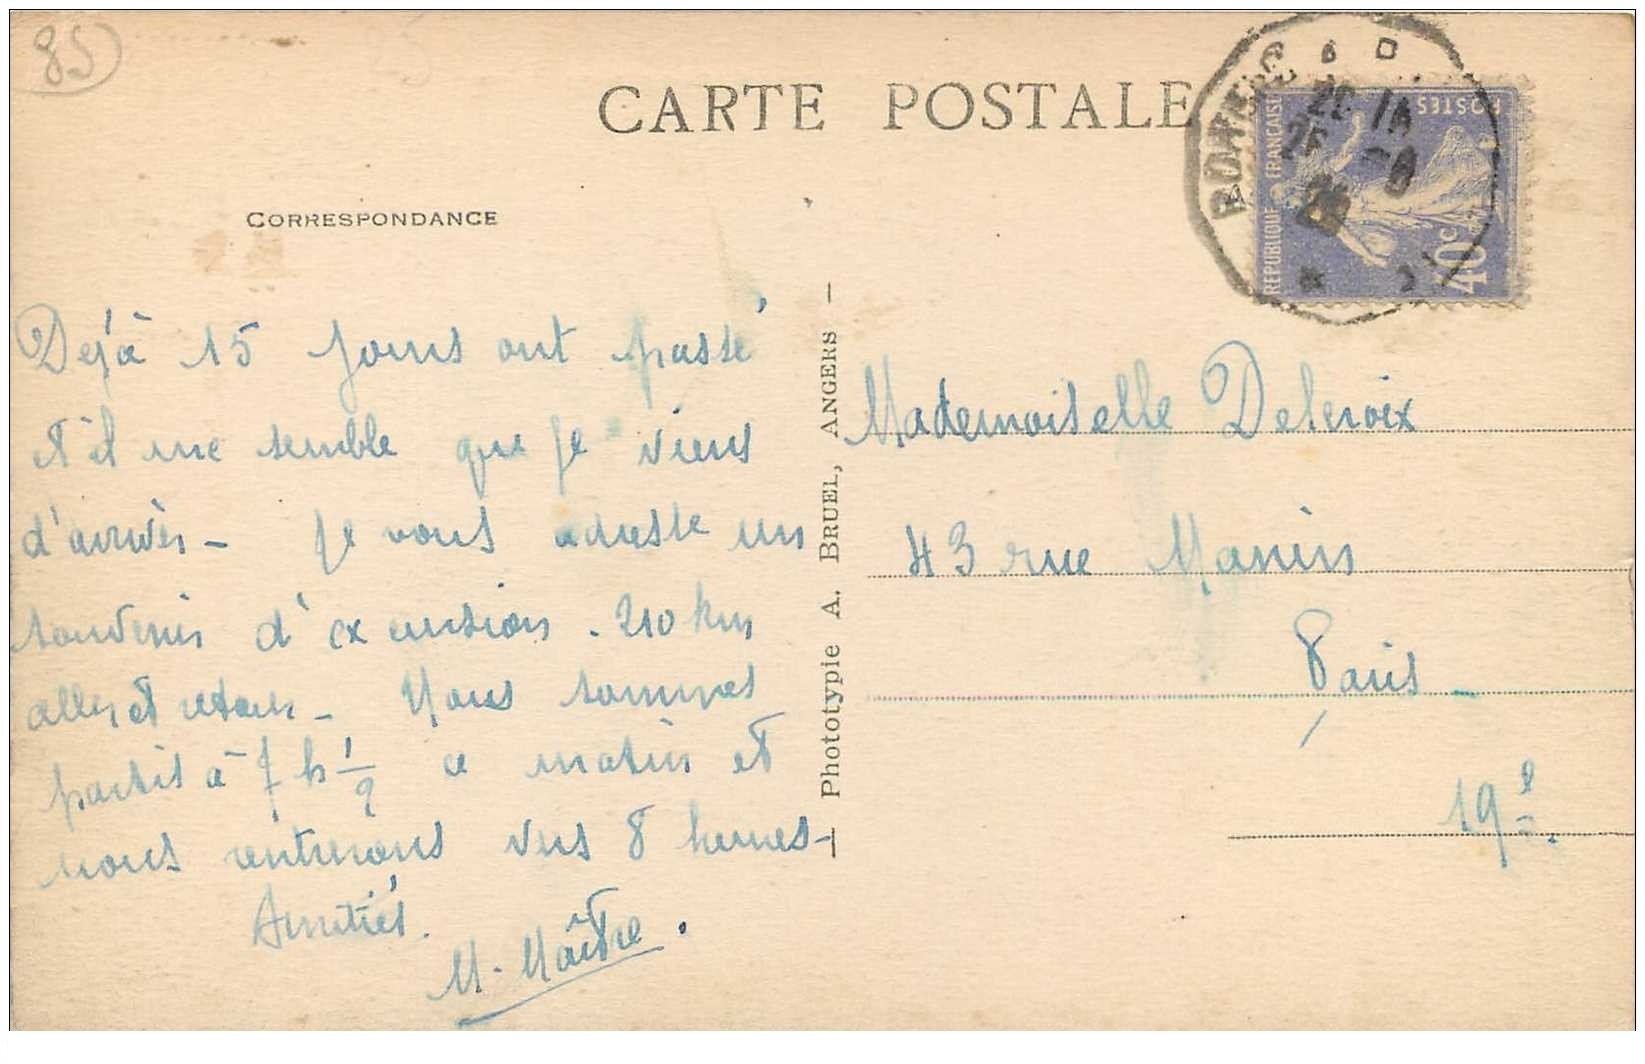 85
CARTE POSTALE
CORRESPONDANCE
Déjà 15 jours ont passé
et il me semble que je viens
d'arriver - Je vous adresse un
souvenir d'excursion. 210 km
aller et retour - Nous sommes
partis à 7 h 1/2 ce matin et
nous rentrerons vers 8 heures -
Amitiés.
M. Maître.
— Phototypie A. BRUEL, ANGERS —
REPUBLIQUE FRANCAISE
POSTES
40c
Mademoiselle Delcroix
43 rue Manin
Paris -
19e.